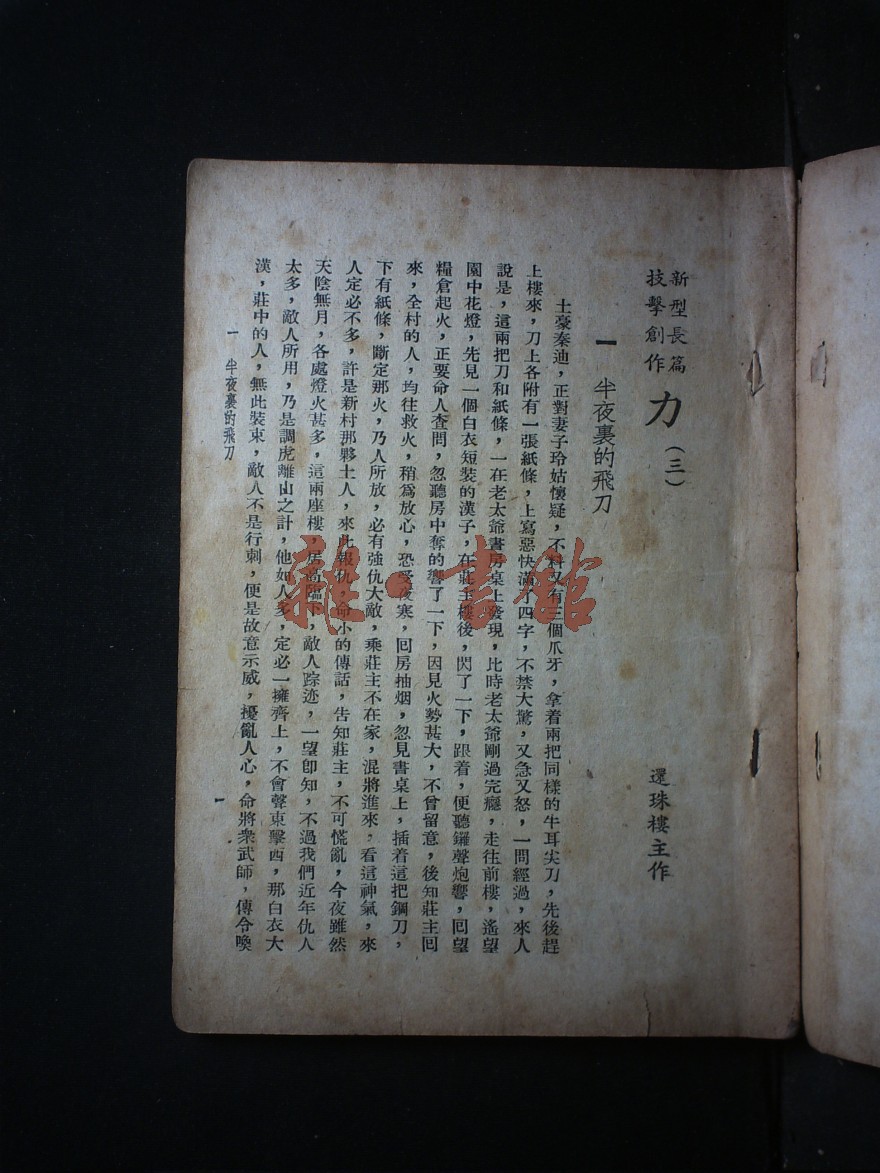 新型長篇
技擊創作
力（三）
還珠樓主作
一 半夜裏的飛刀
土豪秦迪，正對妻子玲姑懷疑，不料又有三個爪牙，拿着兩把同樣的牛耳尖刀，先後趕
上樓來，刀上各附有一張紙條，上寫惡快滿了四字，不禁大驚，又急又怒，一問經過，來人
說是，這兩把刀和紙條，一在老太爺書房桌上發現，比時老太爺剛過完癮，走往前樓，遙望
園中花燈，先見一個白衣短裝的漢子，在莊主樓後，閃了一下，跟着，便聽鑼聲炮響，回望
糧倉起火，正要命人查問，忽聽房中奪的響了一下，因見火勢甚大，不曾留意，後知莊主回
來，全村的人，均往救火，稍爲放心，恐受夜寒，回房抽烟，忽見書桌上，插着這把鋼刀，
下有紙條，斷定那火，乃人所放，必有強仇大敵，乘莊主不在家，混將進來，看這神氣，來
人定必不多，許是新村那夥土人，來此報仇，命小的傳話，告知莊主，不可慌亂，今夜雖然
天陰無月，各處燈火甚多，這兩座樓，居高臨下，敵人踪迹，一望卽知，不過我們近年仇人
太多，敵人所用，乃是調虎離山之計，他如人多，定必一擁齊上，不會聲東擊西，那白衣大
漢，莊中的人，無此裝束，敵人不是行刺，便是故意示威，擾亂人心，命將衆武師，傳令喚
一 半夜裏的飛刀
一
雜·書館